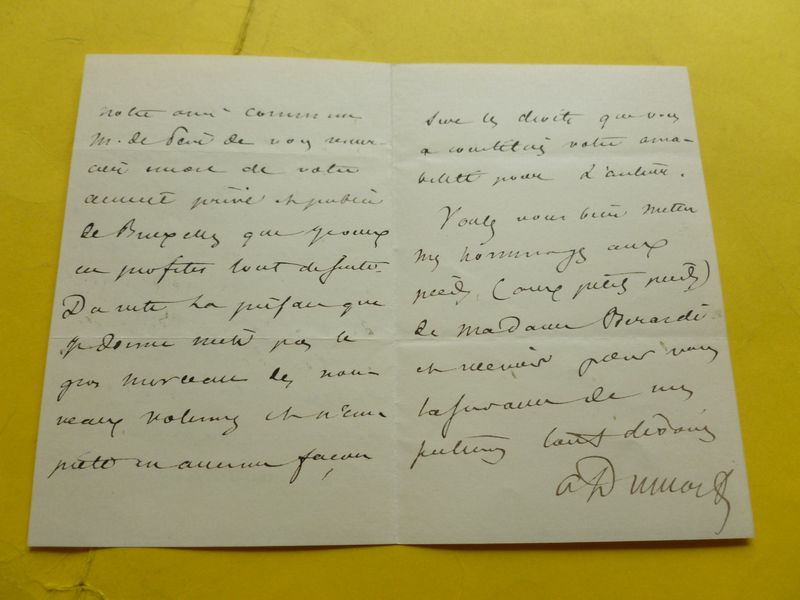 notre ami commun
M. de de vous
mot de votre
privé et public
de Bruxelles que je veux
en profiter tout de suite.
Du reste la préface que
je donne n'est pas le
gros morceau des nou-
veaux volumes et n'em-
piète en aucune façon
sur les droits que vous
a votre ama-
bilité pour l'auteur.
Voulez vous bien mettre
mes hommages aux
pieds, (aux petits pieds)
de Madame Berardi
et recevoir pour vous
l'assurance de mes
sentiments tout dévoués
A Dumas f